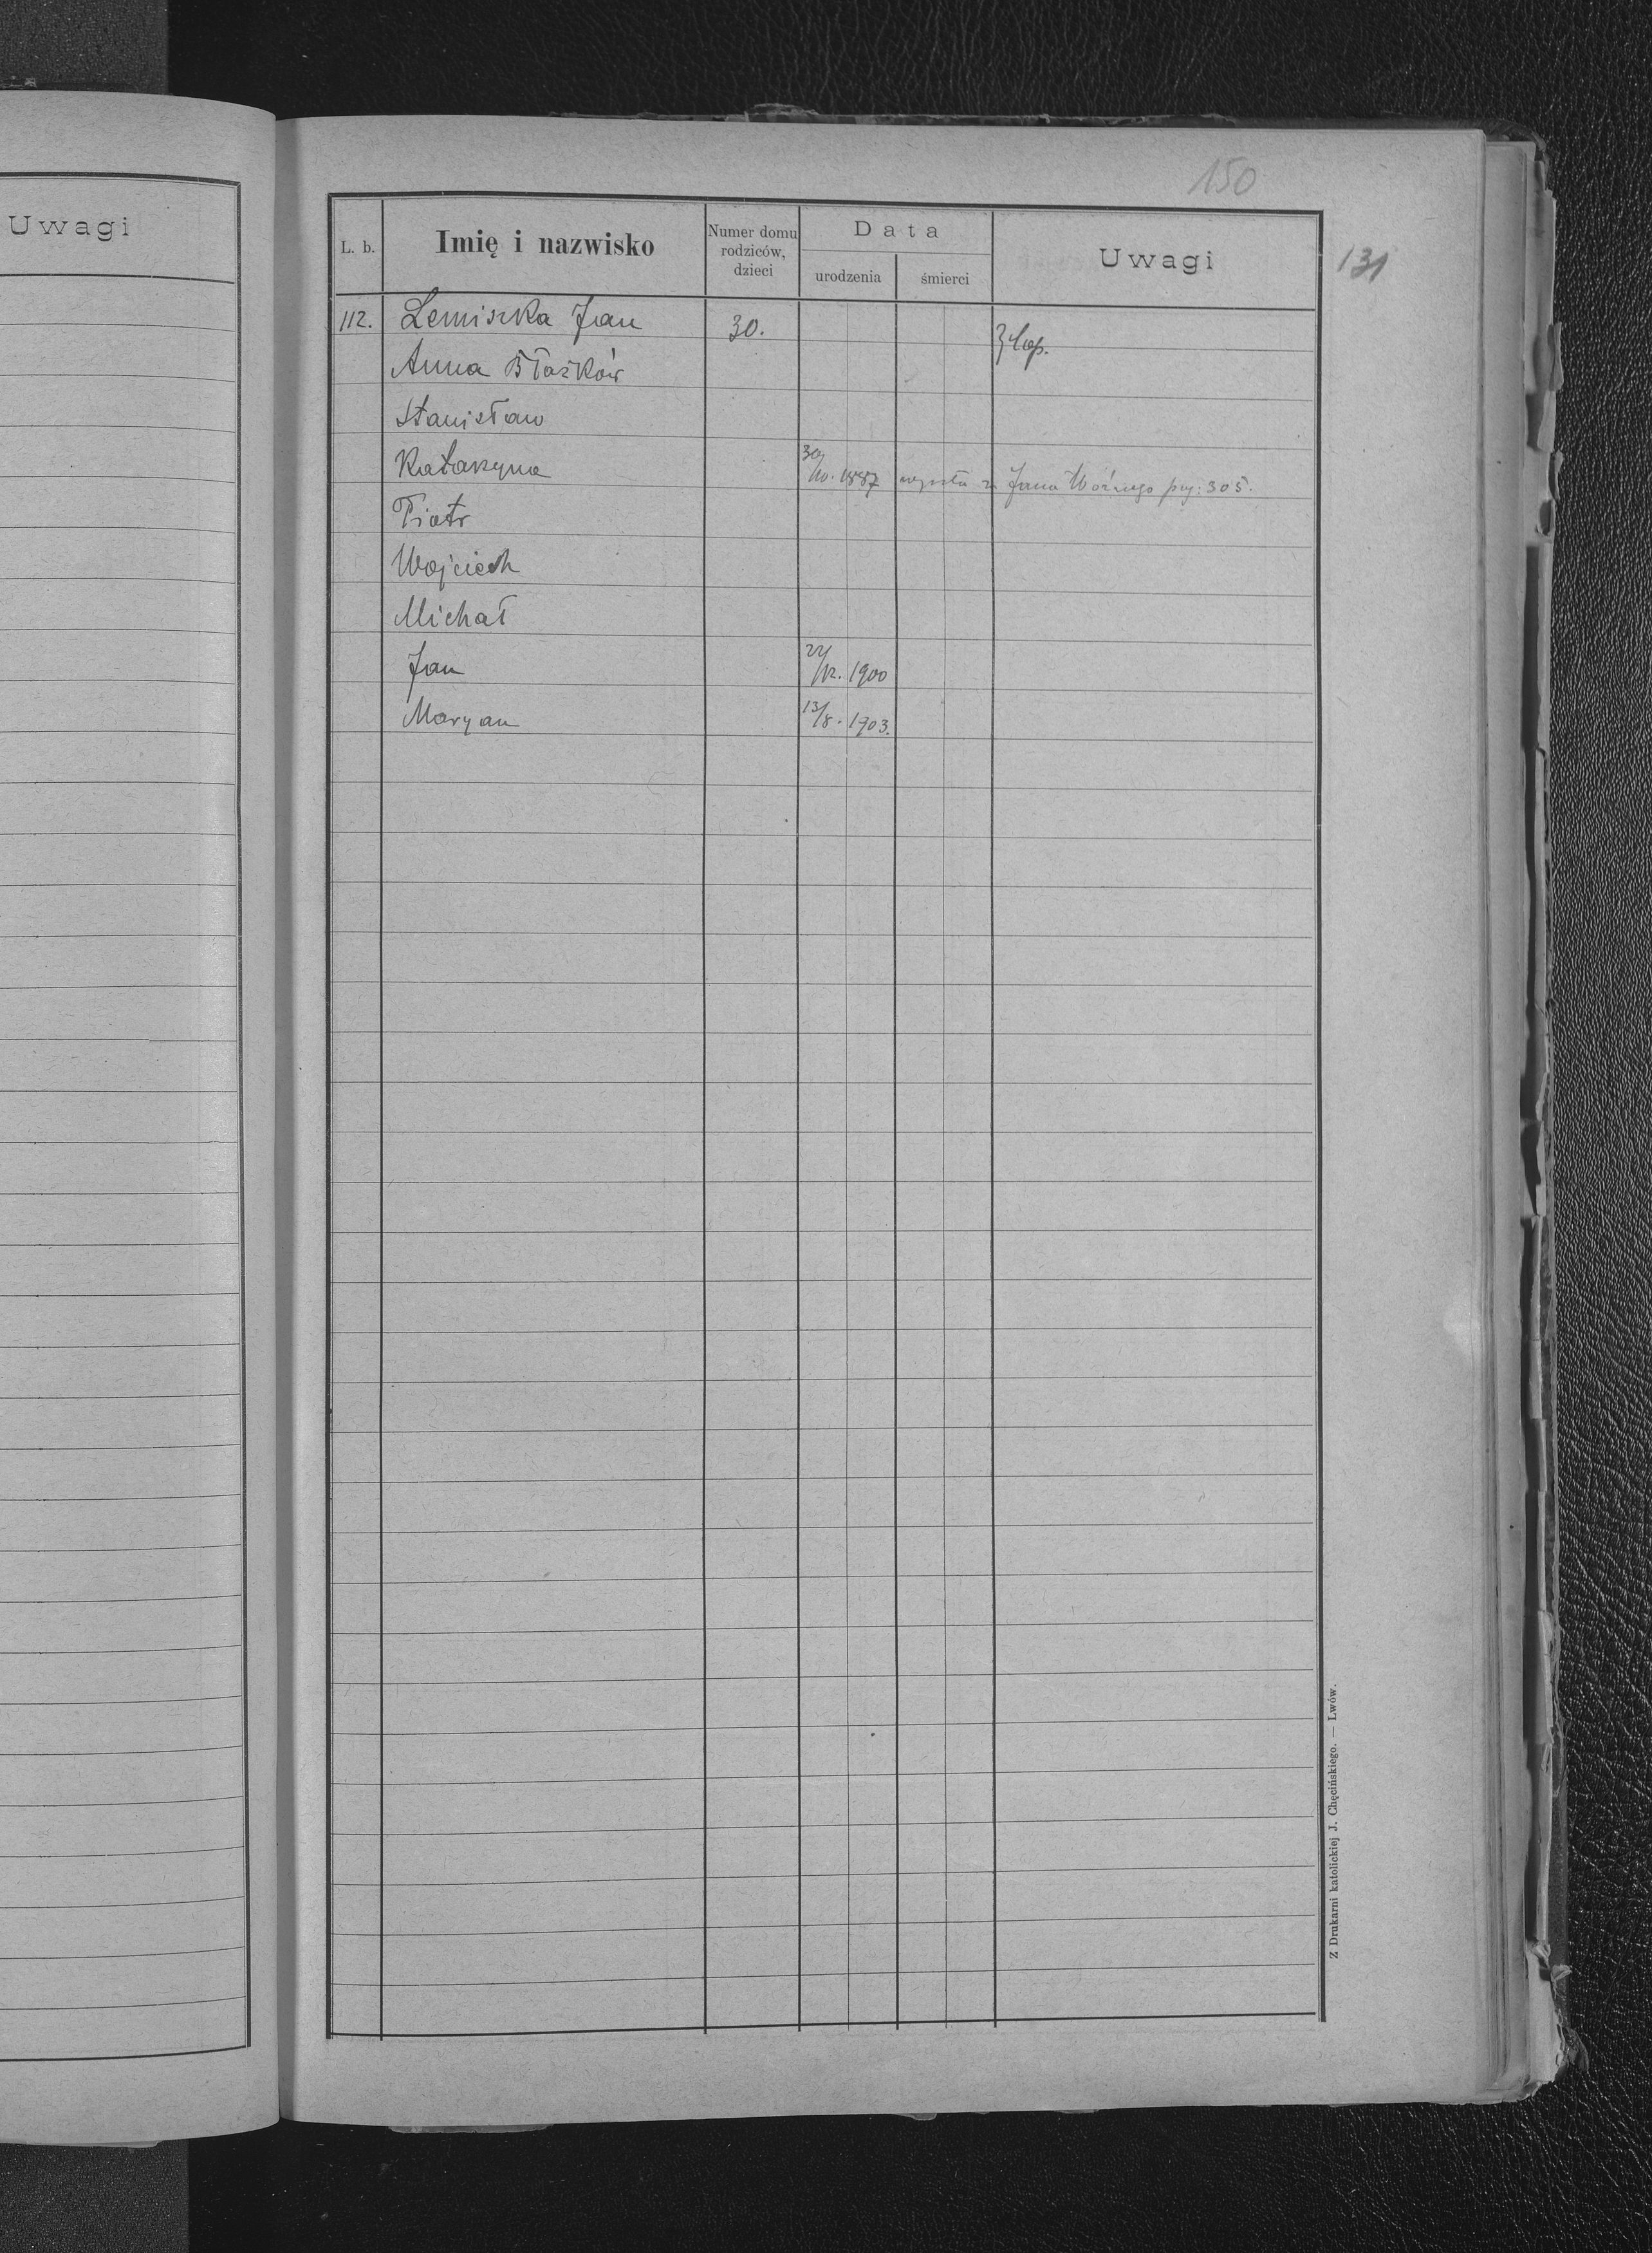 Uwagi
150
131
L. b. Imię i nazwisko Numer domu rodziców, dzieci Data urodzenia śmierci Uwagi
112. Lemiszka Jan 30.
Anna Błażków
Stanisław
Katarzyna 30/10. 1887 wyszła za Jana Woźnego pag: 305.
Piotr
Wojciech
Michał
Jan 22/12. 1900
Maryan 13/8. 1903.
Z Drukarni katolickiej J. Chęcińskiego. — Lwów.